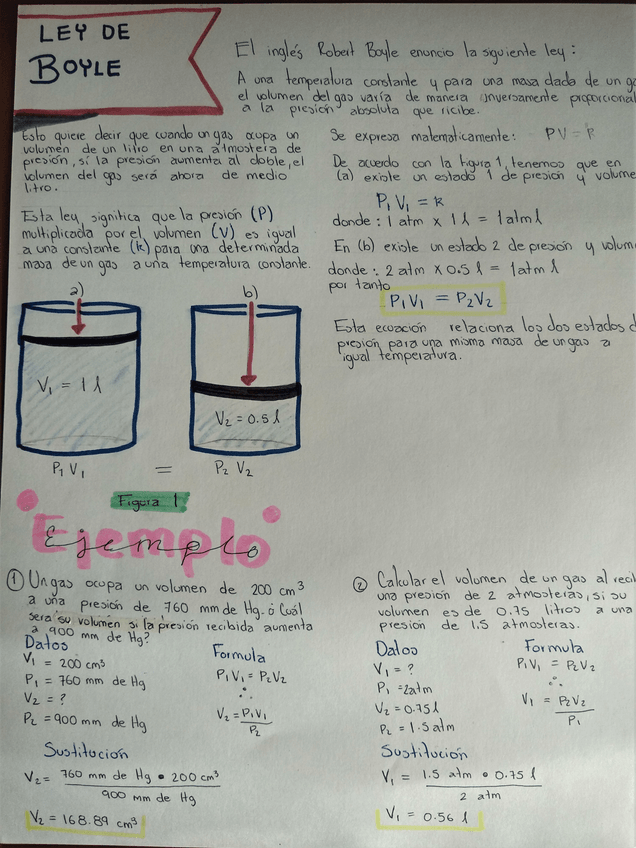 LEY DE
BOYLE
El inglés Robert Boyle enuncio la siguiente ley:
A una temperatura constante y para una masa dada de un
el volumen del gas varía de manera inversamente proporcional
a la presión absoluta que ricibe.
Esto quiere decir que cuando un gas ocupa un
volumen de un litro en una atmosfera de
presión, sí la presión aumenta al doble, el
volumen del gas será ahora de medio
litro.
Esta ley significa que la presión (P)
multiplicada por el volumen (V) es igual
a una constante (k) para una determinada
masa de un gas a una temperatura constante.
Se expresa matematicamente: PV = k
De acuerdo con la figura 1, tenemos que en
(a) existe un estado 1 de presión y volume
P₁ V₁ = k
donde: 1 atm x 1 l = 1 atm l
En (b) existe un estado 2 de presión y volum
donde: 2 atm x 0.5 l = 1 atm l
por tanto
P₁V₁ = P₂V₂
Esta ecuación relaciona los dos estados d
presión para una misma masa de un gas a
igual temperatura.
a) b)
V₁ = 1 l
V₂ = 0.5 l
P₁ V₁ = P₂ V₂
Figura 1
Ejemplo
Ejemplo
① Un gas ocupa un volumen de 200 cm³
a una presión de 760 mm de Hg. ¿Cuál
será su volumen si la presión recibida aumenta
a 900 mm de Hg?
Datos
V₁ = 200 cm³
P₁ = 760 mm de Hg
V₂ = ?
P₂ = 900 mm de Hg
Formula
P₁V₁ = P₂V₂
∴
V₂ = P₁V₁
P₂
Sustitución
V₂ = 760 mm de Hg • 200 cm³
900 mm de Hg
V₂ = 168.89 cm³
② Calcular el volumen de un gas al recib
una presión de 2 atmosferas, si su
volumen es de 0.75 litros a una
presión de 1.5 atmosferas.
Datos
V₁ = ?
P₁ = 2atm
V₂ = 0.75 l
P₂ = 1.5 atm
Formula
P₁V₁ = P₂V₂
∴
V₁ = P₂V₂
P₁
Sustitución
V₁ = 1.5 atm • 0.75 l
2 atm
V₁ = 0.56 l